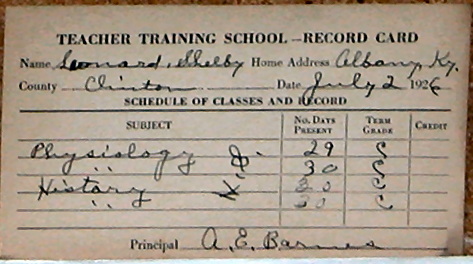 TEACHER TRAINING SCHOOL — RECORD CARD
Name Leonard, Shelby Home Address Albany, Ky.
County Clinton Date July 2 1926
SCHEDULE OF CLASSES AND RECORD
SUBJECT NO. DAYS PRESENT TERM GRADE CREDIT
Physiology 29 C
" 30 C
History 20 C
" 20 C
Principal A. E. Barnes